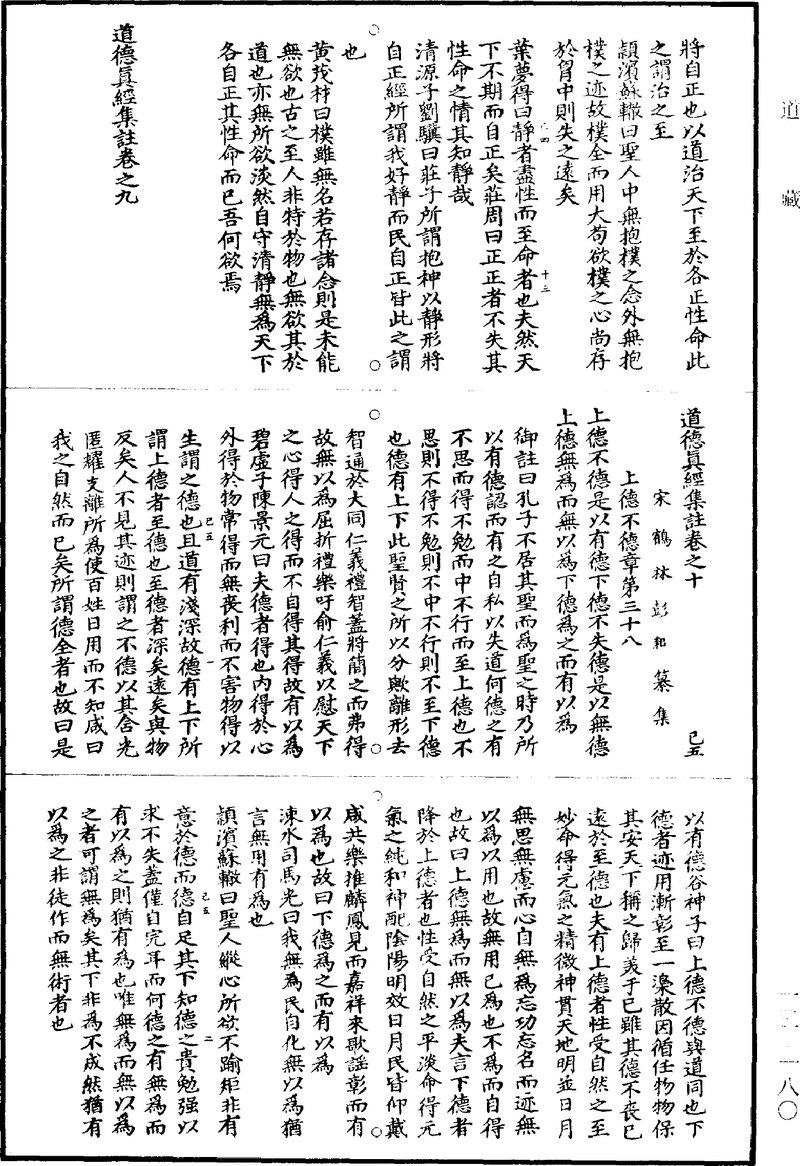 道藏
將自正也以道治天下至於各正性命此
之謂治之至
頴濱蘇轍曰聖人中無抱樸之念外無抱
樸之迹故樸全而用大苟欲樸之心尚存
於胷中則失之遠矣
葉夢得曰靜者盡性而至命者也夫然天
下不期而自正矣莊周曰正正者不失其
性命之情其知靜哉
清源子劉驥曰莊子所謂抱神以靜形將
自正經所謂我好靜而民自正皆此之謂
也
黃茂材曰樸雖無名若存諸念則是未能
無欲也古之至人非特於物也無欲其於
道也亦無所欲淡然自守清靜無為天下
各自正其性命而已吾何欲焉
道德眞經集註卷之九
道德眞經集註卷之十 己五
宋鶴林彭耜纂集
上德不德章第三十八
上德不德是以有德下德不失德是以無德
上德無為而無以為下德為之而有以為
御註曰孔子不居其聖而為聖之時乃所
以有德認而有之自私以失道何德之有
不思而得不勉而中不行而至上德也不
思則不得不勉則不中不行則不至下德
也德有上下此聖賢之所以分歟離形去
智通於大同仁義禮智蓋將簡之而弗得
故無以為屈折禮樂吁俞仁義以慰天下
之心得人之得而不自得其得故有以為
碧虛子陳景元曰夫德者得也內得於心
外得於物常得而無喪利而不害物得以
生謂之德也且道有淺深故德有上下所
謂上德者至德也至德者深矣遠矣與物
反矣人不見其迹則謂之不德以其含光
匿耀支離所為使百姓日用而不知咸曰
我之自然而已矣所謂德全者也故曰是
以有德谷神子曰上德不德與道同也下
德者迹用漸彰至一澆散因循任物物保
其安天下稱之歸美於已雖其德不喪已
遠於至德也夫有上德者性受自然之至
妙命得元氣之精微神貫天地明並日月
無思無慮而心自無為忘功忘名而迹無
以為以用也故無用已為也不為而自得
也故曰上德無為而無以為夫言下德者
降於上德者也性受自然之平淡命得元
氣之純和神配陰陽明效日月民皆仰戴
咸共樂推麟鳳見而嘉祥來歌謠彰而有
以為也故曰下德為之而有以為
涑水司馬光曰我無為民自化無以為猶
言無用有為也
頴濱蘇轍曰聖人縱心所欲不踰矩非有
意於德而德自足其下知德之貴勉强以
求不失蓋僅自完耳而何德之有無為而
有以為之則猶有為也唯無為而無以為
之者可謂無為矣其下非為不成然猶有
以為之非徒作而無術者也